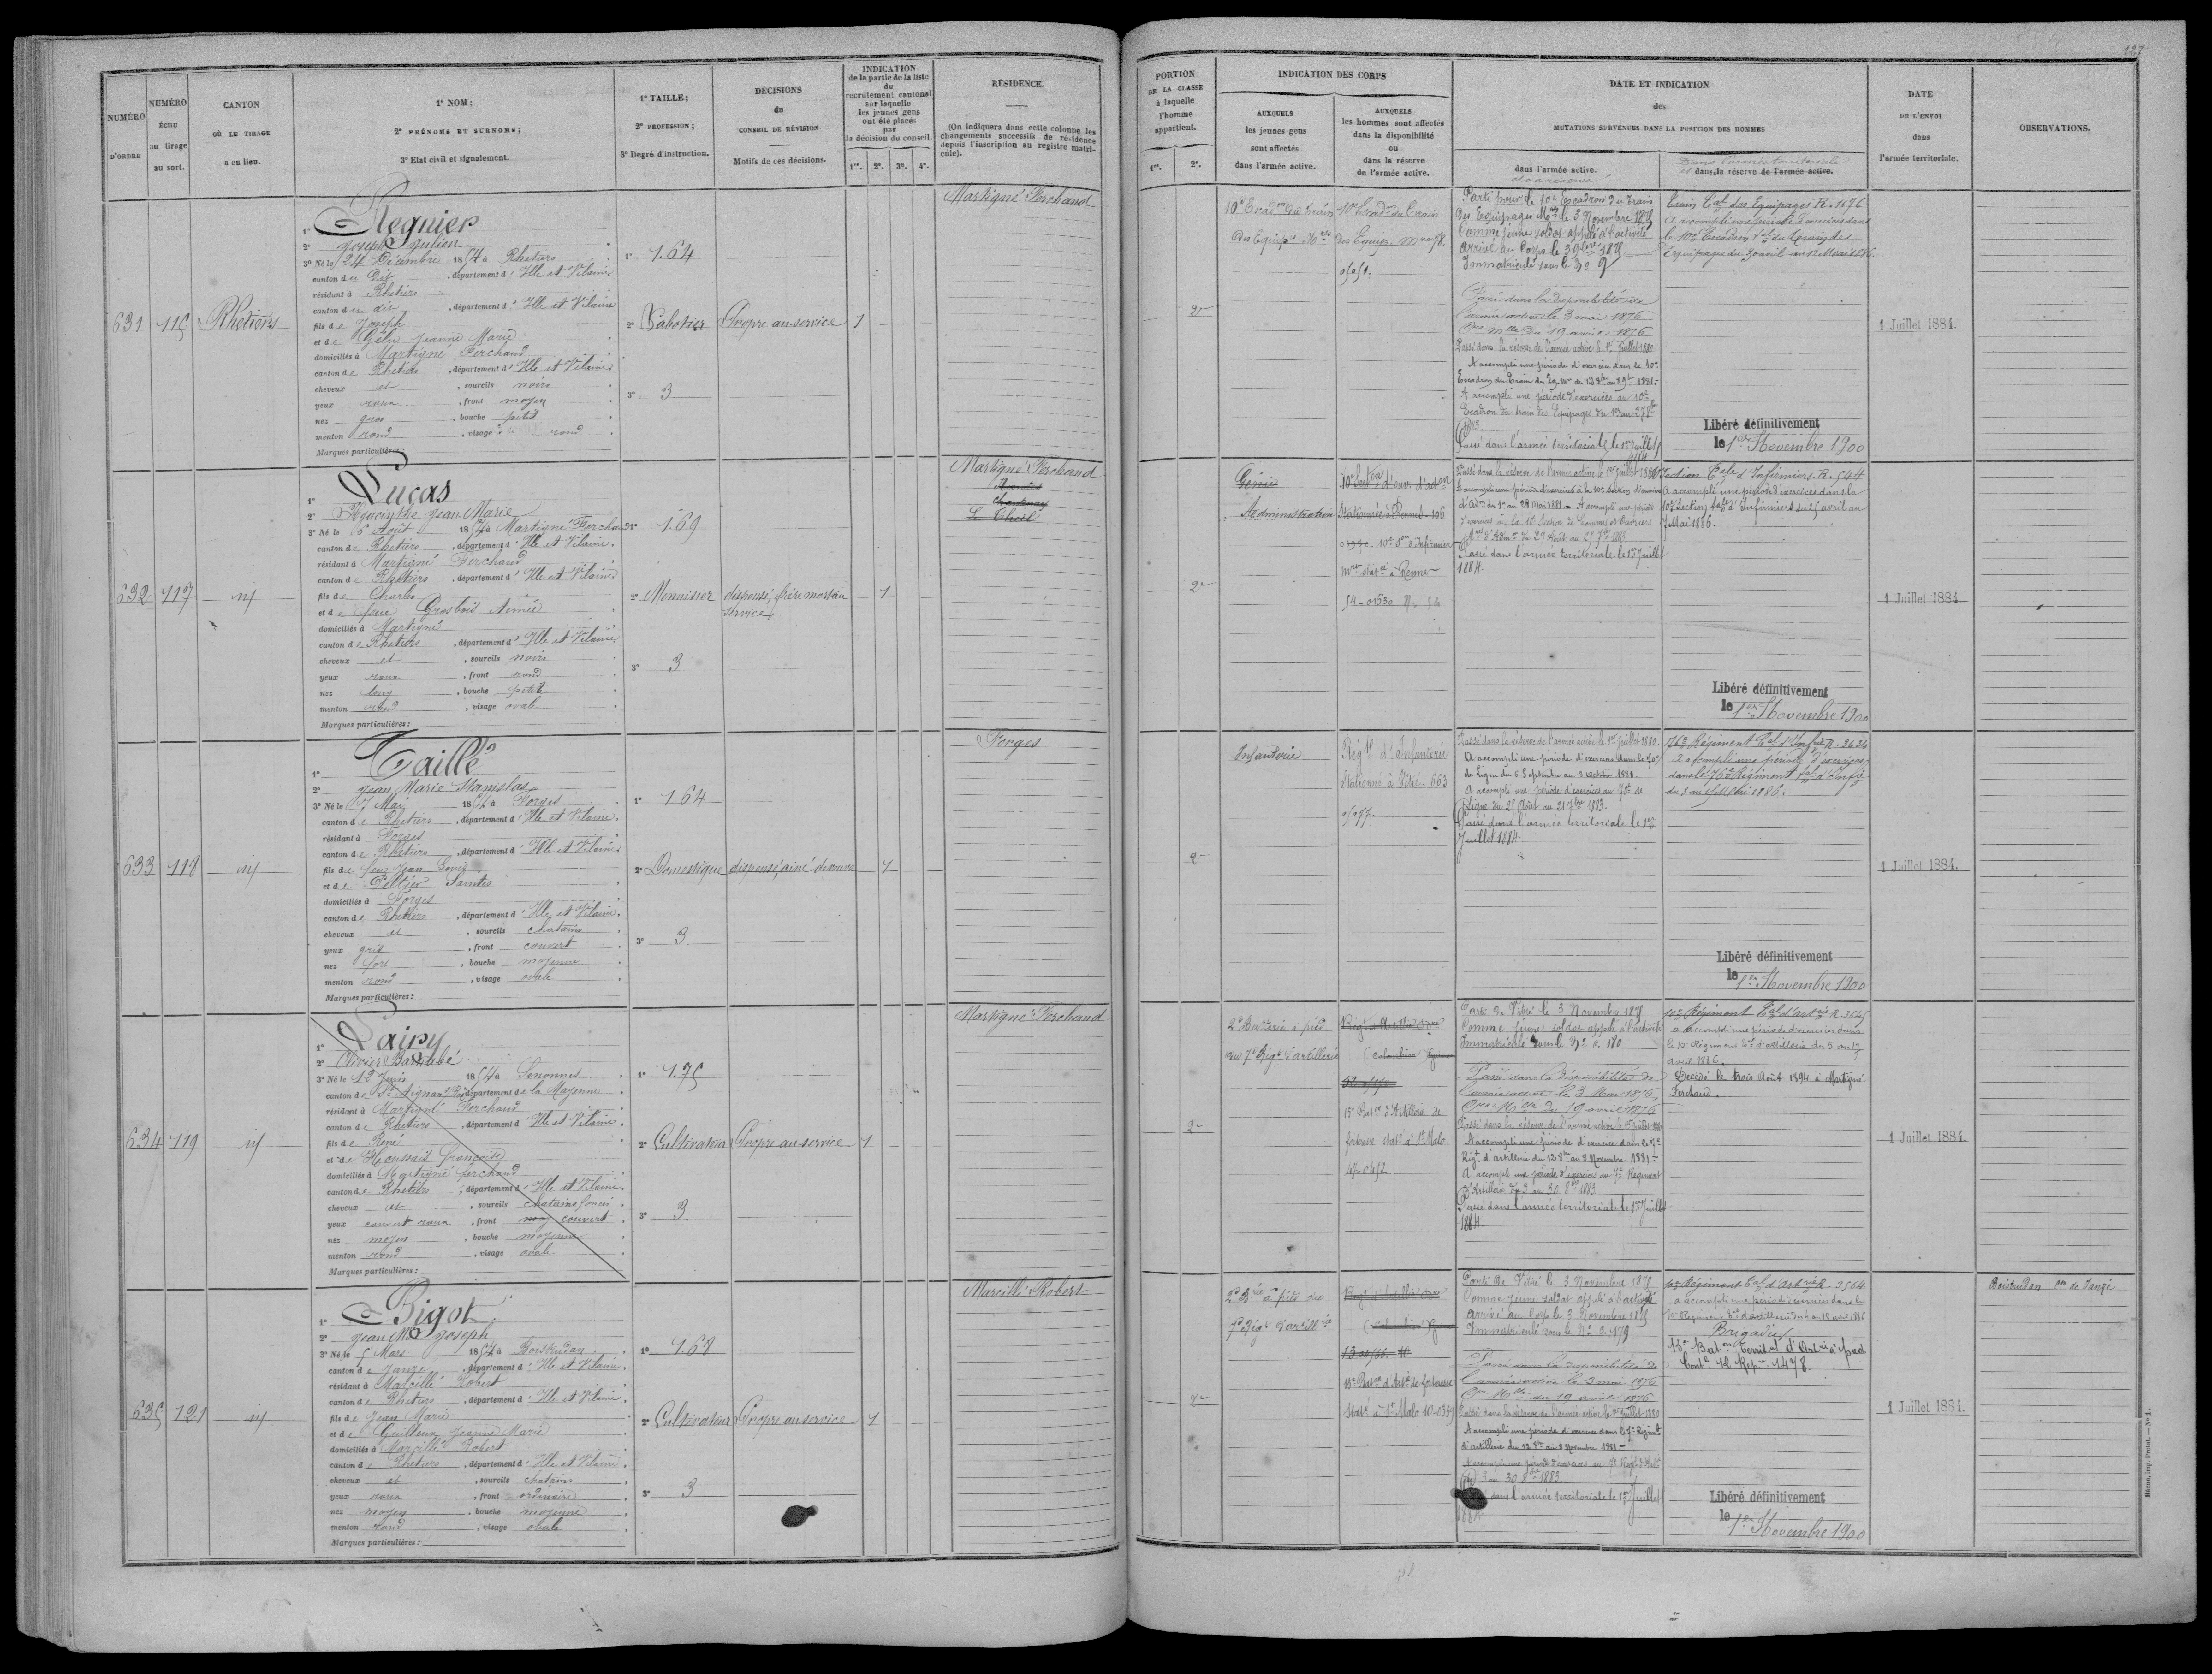 127
NUMÉRO D'ORDRE
NUMÉRO ÉCHU au tirage au sort.
CANTON OÙ LE TIRAGE a eu lieu.
1° NOM;
2° PRÉNOMS ET SURNOMS;
3° Etat civil et signalement.
1° TAILLE;
2° PROFESSION;
3° Degré d'instruction.
DÉCISIONS du CONSEIL DE RÉVISION
Motifs de ces décisions.
INDICATION de la partie de la liste du recrutement cantonal sur laquelle les jeunes gens ont été placés par la décision du conseil.
1re. 2e. 3e. 4e.
RÉSIDENCE.
(On indiquera dans cette colonne les changements successifs de résidence depuis l'inscription au registre matricule).
PORTION DE LA CLASSE à laquelle l'homme appartient.
1re. 2e.
INDICATION DES CORPS
AUXQUELS les jeunes gens sont affectés dans l'armée active.
AUXQUELS les hommes sont affectés dans la disponibilité ou dans la réserve de l'armée active.
DATE ET INDICATION des MUTATIONS SURVENUES DANS LA POSITION DES HOMMES
dans l'armée active.
et sa réserve
Dans l'armée territoriale
et dans sa réserve de l'armée active.
DATE DE L'ENVOI dans l'armée territoriale.
OBSERVATIONS.
631
115
Rhetiers
1° Regnier
2° Joseph Julien
3° Né le 24 Décembre 1854 à Rhetiers
canton du Dit, département d'Ille et Vilaine
résidant à Rhetiers
canton du dit, département d'Ille et Vilaine
fils de Joseph
et de Gélu Jeanne Marie
domiciliés à Martigné Ferchaud
canton de Rhetiers, département d'Ille et Vilaine
cheveux et, sourcils noirs
yeux roux, front moyen
nez gros, bouche petit
menton rond, visage rond
Marques particulières:
1° 1.64
2° Sabotier
3° 3
Propre au service
1
Martigné Ferchaud
2e
10e Escadon du train
Des Equipes Mres
10e Escadon du Train
Des Equip. Mres 58.
0505 1.
Parti pour le 10e Escadron du train
Des Equipages Mres le 3 Novembre 1875
Comme jeune soldat appelé à l'activité
Arrivé au Corps le 3 9bre 1875
Immatriculé sous le No 9
Passé dans la disponibilité de
l'armée active le 3 mai 1876
Ore Mlle du 19 avril 1876
Passé dans la réserve de l'armée active le 1er Juillet 1880
A accompli une période d'exercices dans le 10e
Escadron du Train des Eq. Mres du 12 8bre au 8 9bre 1881
A accompli une période d'exercices au 10e
Escadron du train des Equipages du 1er au 27 8bre
1883.
Passé dans l'armée territoriale le 1er Juillet
1884
Train Tal des Equipages R. 1676
A accompli une période d'exercices dans
le 10e Escadron Tal du train des
Equipages du 30 avril au 12 Mai 1886.
Libéré définitivement
le 1er Novembre 1900
1 Juillet 1884.
632
117
id
1° Lucas
2° Hyacinthe Jean Marie
3° Né le 6 Août 1854 à Martigné Ferchaud
canton de Rhetiers, département d'Ille et Vilaine.
résidant à Martigné Ferchaud
canton de Rhetiers, département d'Ille et Vilaine
fils de Charles
et de feue Grosbois Aimée
domiciliés à Martigné
canton de Rhetiers, département d'Ille et Vilaine
cheveux et, sourcils noirs
yeux roux, front rond
nez long, bouche petite
menton rond, visage ovale
Marques particulières:
1° 1.69
2° Menuisier
3° 3
dispensé, frère mort au
service.
1
Martigné Ferchaud
Nantes
Chantenay
Le Theil
2e
Génie
Administration
10e Section d'ouv. d'adon
Stationnée à Rennes 106
10e Son d'Infirmiers
mres statée à Rennes
54-01630
Passé dans la réserve de l'armée active le 1er Juillet 1880
A accompli une période d'exercices à la 10e Section d'ouvriers
d'Adon du 1er au 28 Mai 1881. A accompli une période
d'exercices à la 10e Section de Commis et Ouvriers
Mres d'Admon du 29 Août au 25 7bre 1883.
Passé dans l'armée territoriale le 1er Juillet
1884
Section Tale d'Infirmiers R. 544
A accompli une période d'exercices dans la
10e Section Tale d'Infirmiers du 25 avril au
7 Mai 1886.
Libéré définitivement
le 1er Novembre 1900
1 Juillet 1884
633
118
id
1° Taillé
2° Jean Marie Stanislas
3° Né le 7 Mai 1854 à Forges
canton de Rhetiers, département d'Ille et Vilaine.
résidant à Forges
canton de Rhetiers, département d'Ille et Vilaine
fils de feu Jean Louis
et de Peltier Saintes
domiciliés à Forges
canton de Rhetiers, département d'Ille et Vilaine.
cheveux et, sourcils chatains
yeux gris, front couvert
nez fort, bouche moyenne
menton rond, visage ovale
Marques particulières:
1° 1.64
2° Domestique
3° 3
dispensé, ainé de veuve
1
Forges
2e
Infanterie
Régt d'Infanterie
Stationné à Vitré. 663
Passé dans la réserve de l'armée active le 1er Juillet 1880
A accompli une période d'exercices dans le 70e
de ligne du 6 Septembre au 3 Octobre 1881.
A accompli une période d'exercices au 70e de
Ligne du 25 Août au 21 7bre 1883.
Passé dans l'armée territoriale le 1er
Juillet 1884
76e Régiment Tal d'Infrie R. 3424
A accompli une période d'exercices
dans le 76e Régiment Tal d'Infie
du 3 au 15 Mai 1886.
Libéré définitivement
le 1er Novembre 1900
1 Juillet 1884.
634
119
id
1° Lairy
2° Olivier Barnabé
3° Né le 12 Juin 1854 à Senonnes
canton de St Aignan s/ Roë département de la Mayenne
résidant à Martigné Ferchaud
canton de Rhetiers, département d'Ille et Vilaine.
fils de René
et de Houssais Françoise
domiciliés à Martigné ferchaud
canton de Rhetiers, département d'Ille et Vilaine.
cheveux et, sourcils chatains foncés
yeux couvert roux, front moy couvert
nez moyen, bouche moyenne
menton rond, visage ovale
Marques particulières:
1° 1.75
2° Cultivateur
3° 3
Propre au service
1
Martigné Ferchaud
2e
2e Batterie à pied
du 7e Régt d'artillerie
15e Baton d'Artillerie de
forteresse staté à St Malo
47-0452
Parti de Vitré le 3 Novembre 1875
Comme jeune soldat appelé à l'activité
Immatriculé sous le No 2.180
Passé dans la disponibilité de
l'armée active le 3 Mai 1876,
Ore Mlle du 19 avril 1876
Passé dans la réserve de l'armée active le 1er Juillet 1880
A accompli une période d'exercice dans le 7e
Régt d'artillerie du 12 8bre au 8 Novembre 1881
A accompli une période d'exercices au 7e Régiment
d'Artillerie du 3 au 30 8bre 1883
Passé dans l'armée territoriale le 1er Juillet
1884.
10e Régiment Tal d'artrie R. 3545
a accompli une période d'exercices dans
le 10e Régiment Tal d'artillerie du 5 au 17
avril 1886.
Décédé le trois Août 1894 à Martigné
Ferchaud.
1 Juillet 1884.
635
121
id
1° Rigot
2° Jean Mie Joseph
3° Né le 5 Mars 1854 à Boistrudan
canton de Janzé, département d'Ille et Vilaine.
résidant à Marcillé Robert
canton de Rhetiers, département d'Ille et Vilaine.
fils de Jean Marie
et de Guilleux Jeanne Marie
domiciliés à Marcillé Robert
canton de Rhetiers, département d'Ille et Vilaine.
cheveux et, sourcils chatains
yeux roux, front ordinaire
nez moyen, bouche moyenne
menton rond, visage ovale
Marques particulières:
1° 1.68
2° Cultivateur
3° 3
Propre au service
1
Marcillé Robert
2e
2e Brie à pied du
7e Régt d'artillrie
15e Baton d'Artie de forteresse
Staté à St Malo 10-0359
Parti de Vitré le 3 Novembre 1875
Comme jeune soldat appelé à l'activité
Arrivé au Corps le 3 Novembre 1875
Immatriculé sous le No 2.179
Passé dans la disponibilité de
l'armée active le 3 mai 1876
Ore Mlle du 19 avril 1876
Passé dans la réserve de l'armée active le 1er Juillet 1880
A accompli une période d'exercice dans le 7e Régiment
d'artillerie du 12 8bre au 8 Novembre 1881
A accompli une période d'exercices au 7e Régt d'Artie
du 3 au 30 8bre 1883
dans l'armée territoriale le 1er Juillet
1884.
10e Régiment Tal d'Artrie R. 3564
a accompli une période d'exercices dans le
Brigadier
15e Baton Territal d'Artie à pied
1478.
Libéré définitivement
le 1er Novembre 1900
1 Juillet 1884.
Boistrudan con de Janzé
Mâcon, imp. Protat. — No 1.